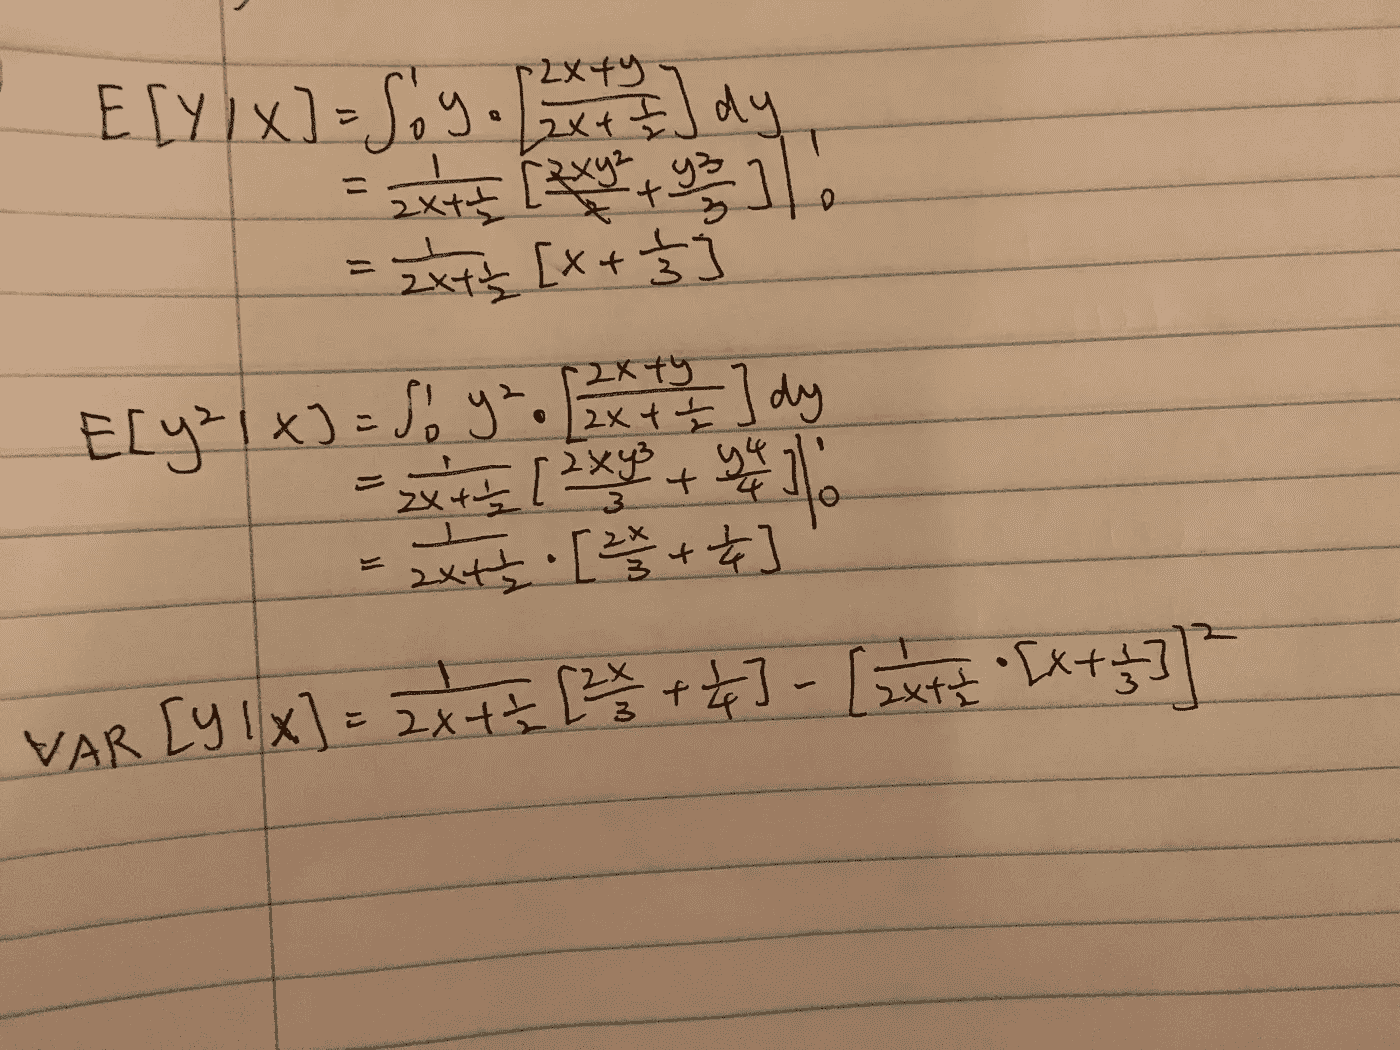 E[Y|X] = ∫₀¹ y · [(2x+y)/(2x+1/2)] dy
= 1/(2x+1/2) [2xy²/2 + y³/3] |₀¹
= 1/(2x+1/2) [x + 1/3]
E[y²|x] = ∫₀¹ y² · [(2x+y)/(2x+1/2)] dy
= 1/(2x+1/2) [2xy³/3 + y⁴/4] |₀¹
= 1/(2x+1/2) · [2x/3 + 1/4]
VAR[y|x] = 1/(2x+1/2) [2x/3 + 1/4] - [1/(2x+1/2) · [x + 1/3]]²